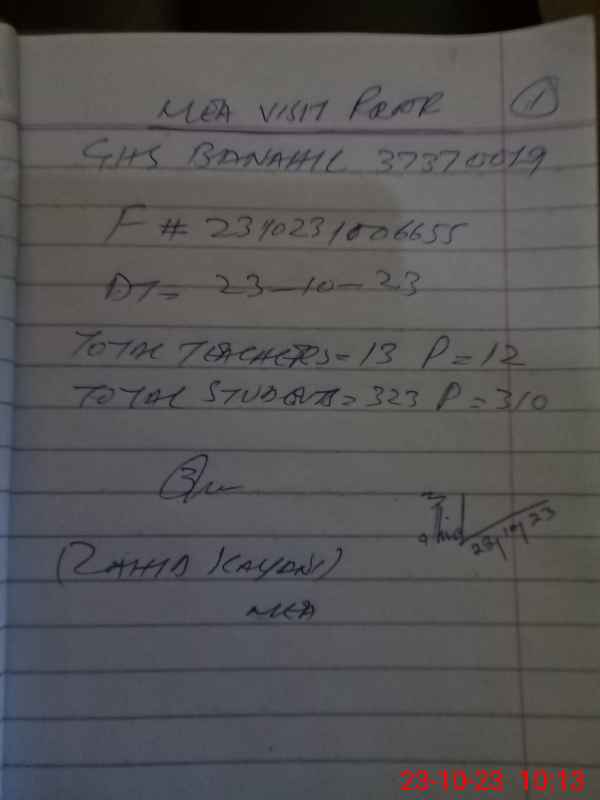 MEA VISIT PROOF
1
GHS BANAHIL 37370019
F # 2310231006655
DT= 23-10-23
TOTAL TEACHERS= 13 P=12
TOTAL STUDENTS= 323 P=310
23/10/23
(ZAHID KAYANI)
MEA
23-10-23 10:13